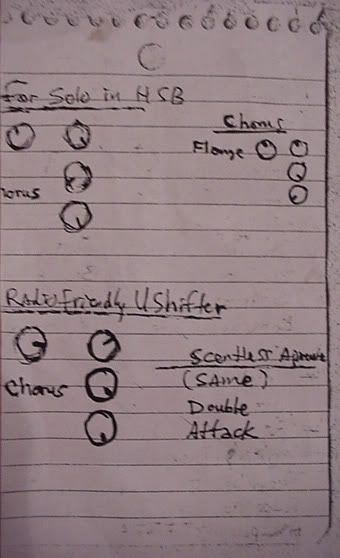 For Solo in HSB
Chorus
Flange
horus
Radio Friendly UShifter
Scentless
(SAme)
Chorus
Double
Attack